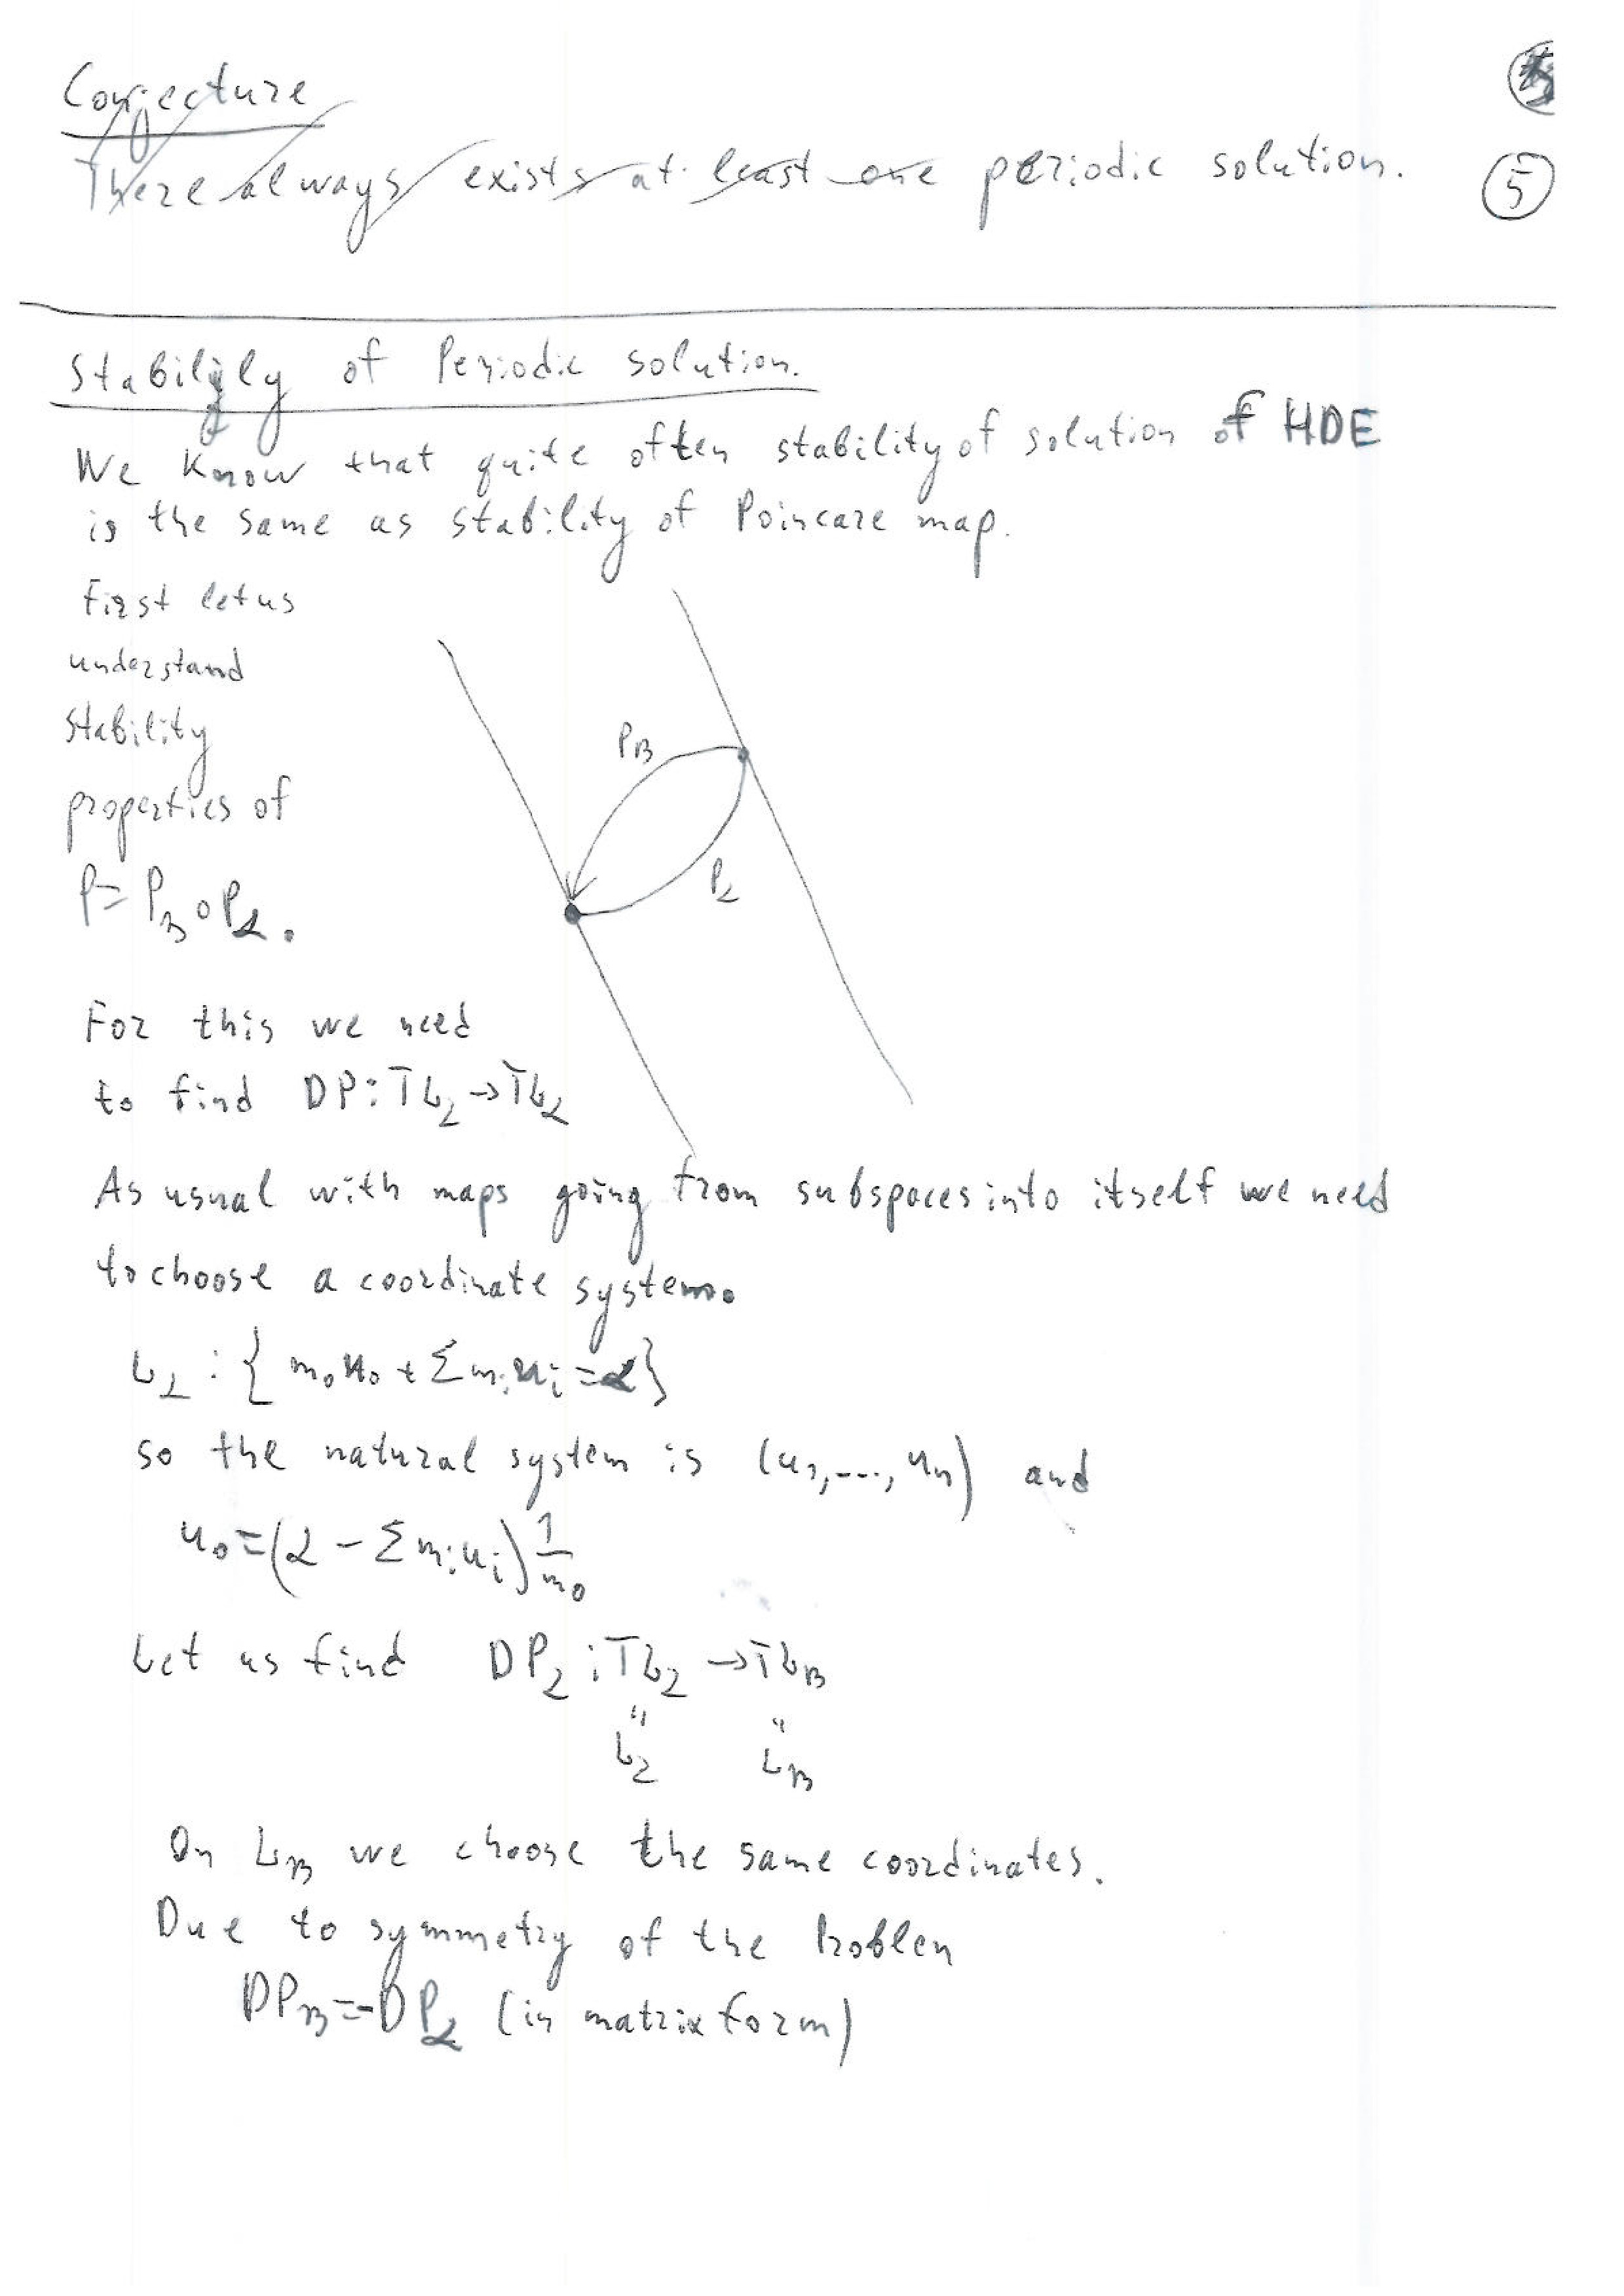 Conjecture
There always exists at least one periodic solution.
5
Stability of Periodic solution.
We know that quite often stability of solution of HDE
is the same as stability of Poincare map.
First let us
understand
stability
properties of
P = P_β ∘ P_α.
P_β
P_α
For this we need
to find DP: TL_α → TL_α
As usual with maps going from subspaces into itself we need
to choose a coordinate system.
L_α : { m₀u₀ + Σ mᵢuᵢ = α }
so the natural system is (u₁, ..., uₙ) and
u₀ = (α − Σ mᵢuᵢ) 1/m₀
Let us find DP_α : TL_α → TL_β
" "
L_α L_β
On L_β we choose the same coordinates.
Due to symmetry of the Problem
DP_β = -DP_α (in matrix form)